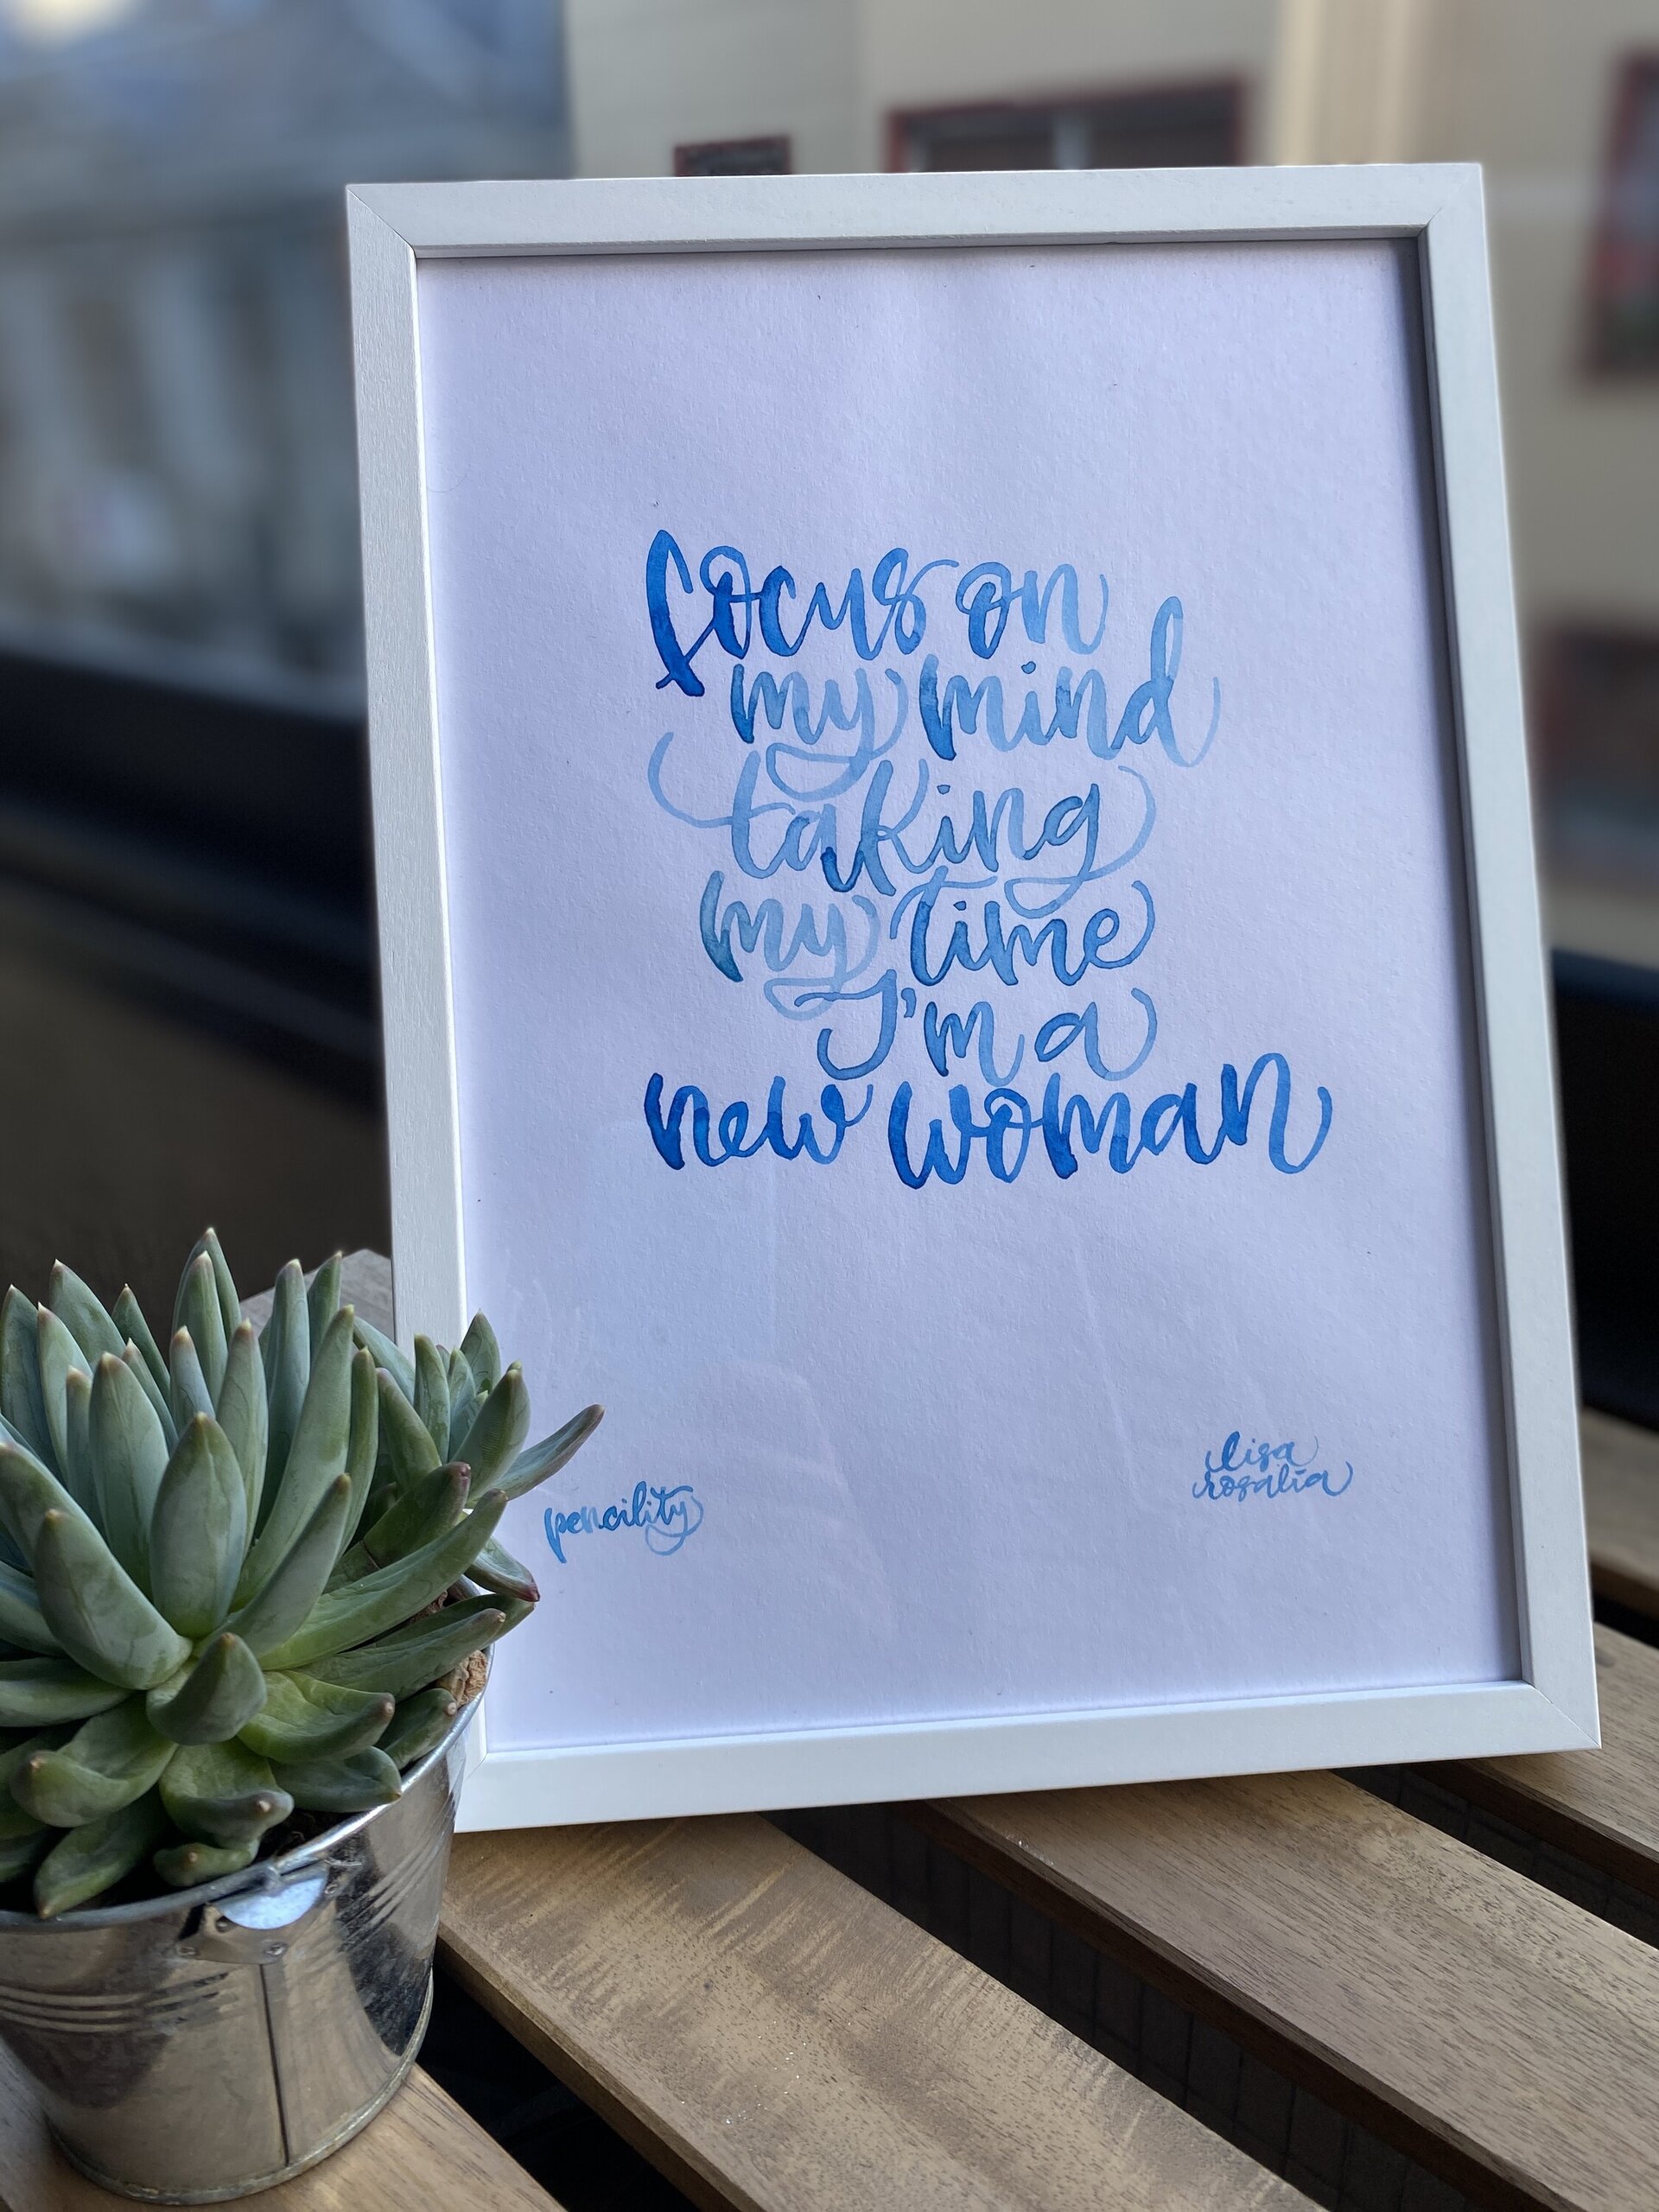 focus on
my mind
taking
my time
I'm a
new woman
pencility
lisa
rosalia